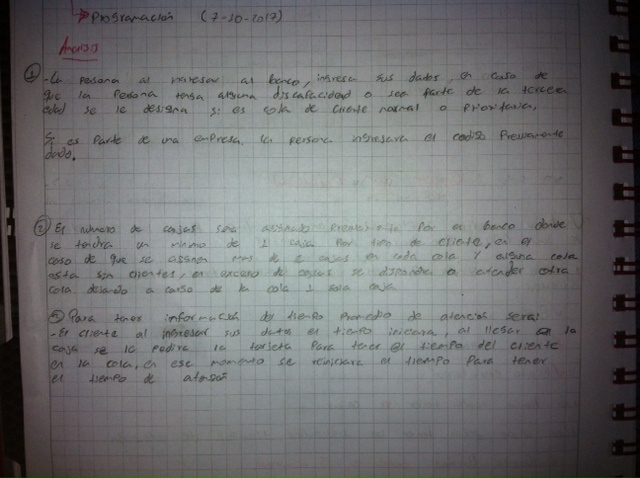 Programación (7-10-2017)
Analisis
① - La persona al ingresar al banco, ingresa sus datos, en caso de
que la persona tenga alguna discapacidad o sea parte de la tercera
edad se le designa si es cola de cliente normal o prioritaria.
Si es parte de una empresa, la persona ingresara el codigo previamente
dado.
② El numero de cajas sera asignado previamente por el banco donde
se tendra un minimo de 1 caja por tipo de cliente, en el
caso de que se asignen mas de 2 cajas en cada cola y alguna cola
esta sin clientes, el exceso de cajas se dispondra a atender otra
cola dejando a cargo de la cola 1 sola caja
③ Para tener informacion de tiempo promedio de atencion sera:
- El cliente al ingresar sus datos el tiempo iniciara, al llegar a la
caja se le pedira la tarjeta para tener el tiempo del cliente
en la cola, en ese momento se reiniciara el tiempo para tener
el tiempo de atencion